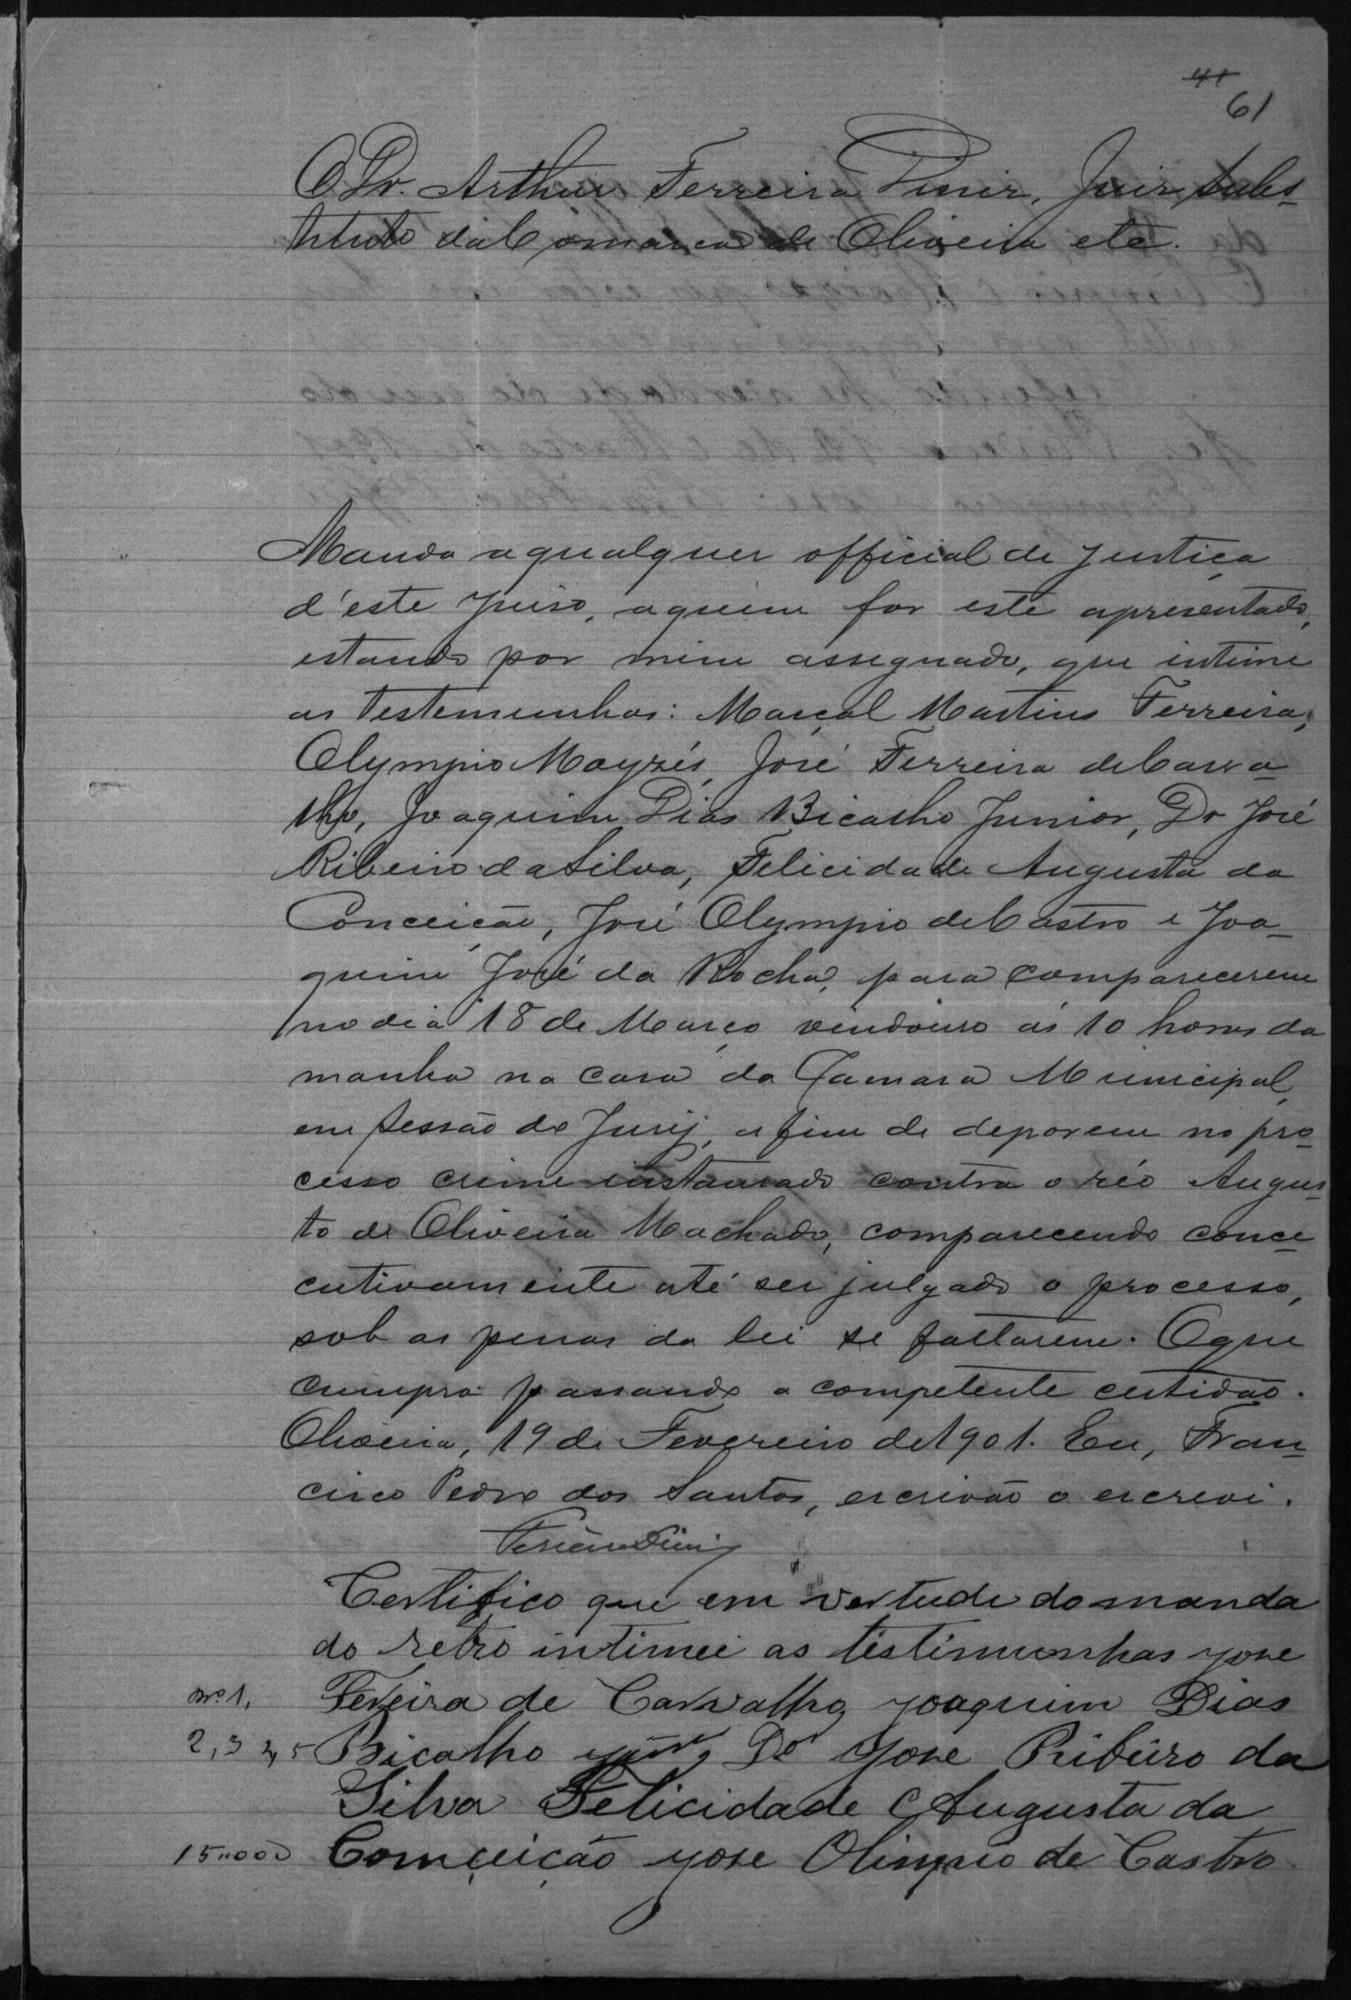 41
61
O Dr. Arthur Ferreira Diniz, Juiz Subs-
tituto da Comarca de Oliveira etc.
Manda a qualquer official de justiça
d'este juiso, a quem for este apresentado,
estando por mim assegnado, que intime
as testemunhas: Marçal Martins Ferreira,
Olympio Moyzés, José Ferreira de Carva-
lho, Joaquim Dias Bicalho Junior, Dr José
Ribeiro da Silva, Felicidade Augusta da
Conceição, José Olympio de Castro e Joa-
quim José da Rocha, para comparecerem
no dia 18 de Março vindouro ás 10 horas da
manha na casa da Camara Municipal,
em sessão do Jury, a fim de deporem no pro-
cesso crime instaurado contra o réo Augus-
to de Oliveira Machado, comparecendo conce-
cutivamente até ser julgado o processo,
sob as penas da lei se faltarem. O que
cumpra passando a competente certidão.
Oliveira, 19 de Fevereiro de 1901. Eu, Fran-
cisco Pedro dos Santos, escrivão o escrevi.
Ferreira Diniz
Certifico que em vertude do manda
do retro intimei as testimunhas jose
Fereira de Carvalho, joaquim Dias
nº 1,
Bicalho junr, Dor jose Ribeiro da
2, 3 4, 5
Silva Felicidade Augusta da
Comçeição jose Olimpio de Castro
15"000